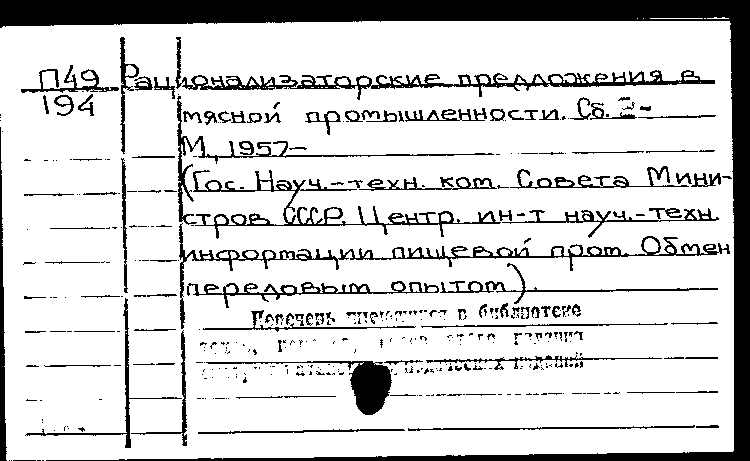 П49 Рационализаторские предложения в
194 мясной промышленности. Сб. 2-
М., 1957-
(Гос. Науч.-техн. ком. Совета Мини-
стров СССР. Центр. ин-т науч.-техн.
информации пищевой пром. Обмен
передовым опытом).
Перечень имеющихся в библиотеке
этого издания
изданий